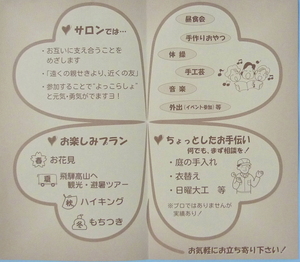 サロンでは…
・お互いに支え合うことを
めざします
・「遠くの親せきより、近くの友」
・参加することで“よっこらしょ”
と元気・勇気がでますヨ！
昼食会
手作りおやつ
体操
手工芸
音楽
外出（イベント参加）等
お楽しみプラン
春 お花見
飛騨高山へ
観光・避暑ツアー
秋 ハイキング
冬 もちつき
ちょっとしたお手伝い
何でも、まず相談を！
・庭の手入れ
・衣替え
・日曜大工 等
※プロではありませんが
実績あり！
お気軽にお立ち寄り下さい！